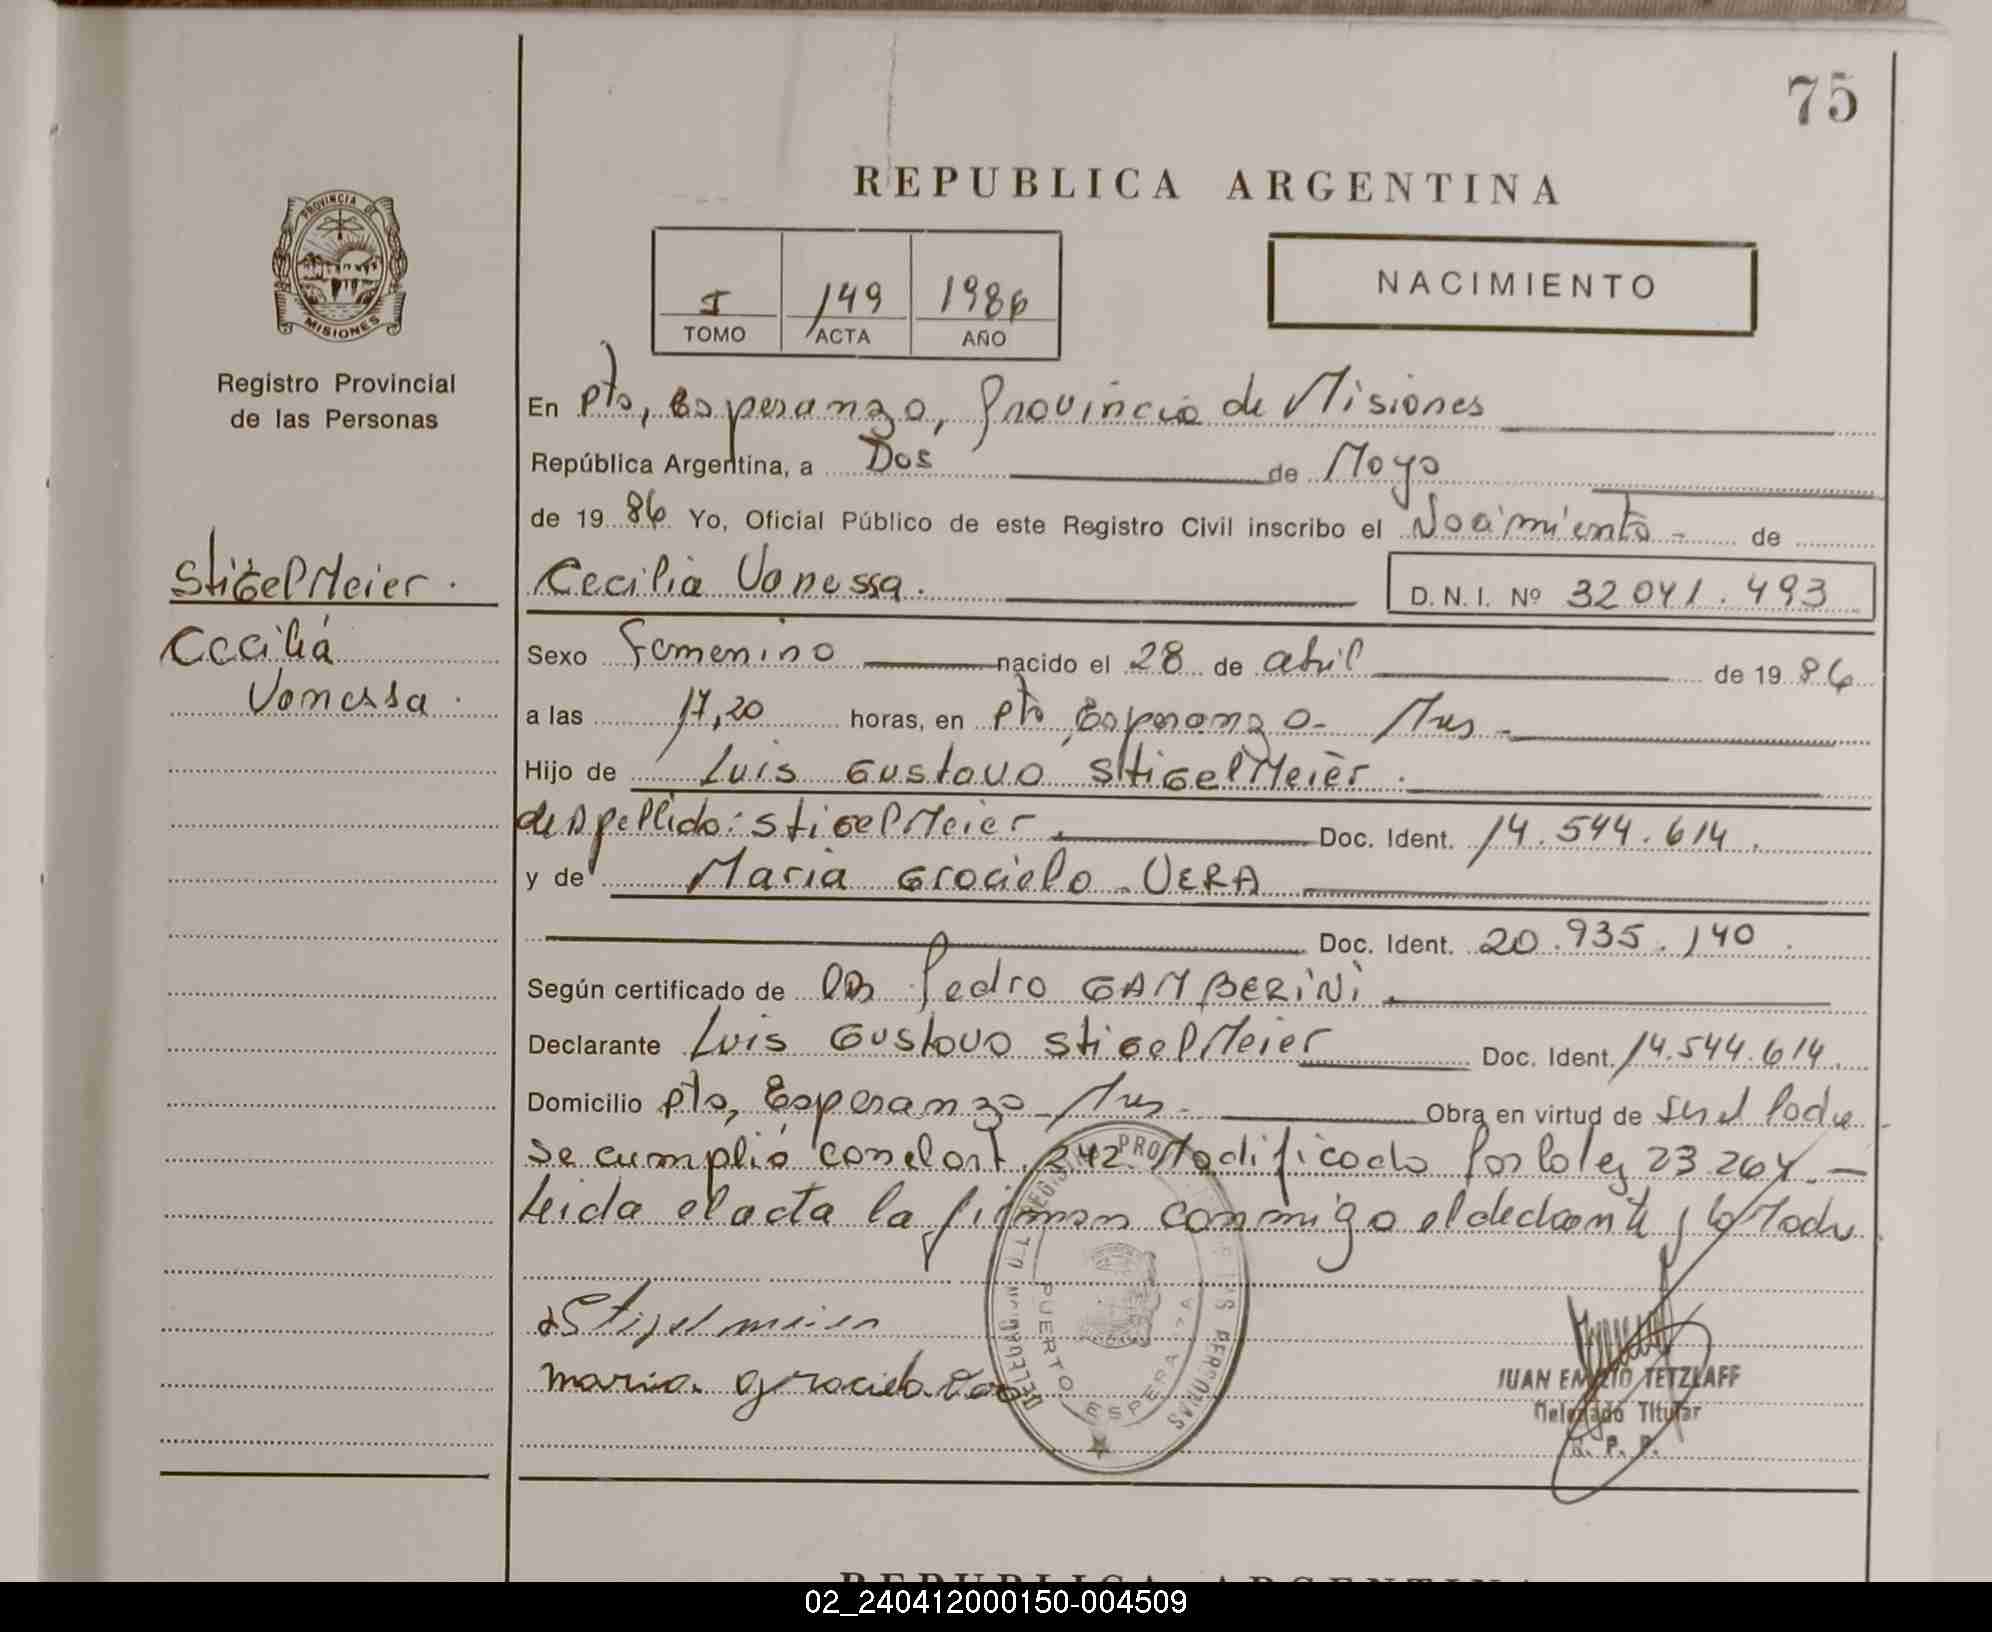 75
REPUBLICA ARGENTINA
PROVINCIA DE
MISIONES
Registro Provincial
de las Personas
I 149 1986
TOMO ACTA AÑO
NACIMIENTO
En Pto, Esperanza, Provincia de Misiones
República Argentina, a Dos de Mayo
de 1986 Yo, Oficial Público de este Registro Civil inscribo el Nacimiento - de
StigelMeier.
Cecilia
Vanessa.
Cecilia Vanessa.
D. N. I. Nº 32041.493
Sexo Femenino nacido el 28 de abril de 1986
a las 17,20 horas, en Pto Esperanza - Mnes -
Hijo de Luis Gustavo StigelMeier.
de Apellido: StigelMeier. Doc. Ident. 14.544.614.
y de Maria Graciela - VERA
Doc. Ident. 20.935.140.
Según certificado de Pedro GAMBERINI
Declarante Luis Gustavo StigelMeier Doc. Ident. 14.544.614.
Domicilio Pto, Esperanza - Mnes - Obra en virtud de ser el Padre
Se cumplió con el art. 242 Modificado Por la ley 23.264 -
leida el acta la firman conmigo el declarante y la Madre
Stigelmeier
Maria graciela
DELEGACION REGISTRO PROV. DE LAS PERSONAS
PUERTO ESPERANZA
JUAN EMILIO TETZLAFF
Delegado Titular
R. P. P.
REPUBLICA ARGENTINA
02_240412000150-004509